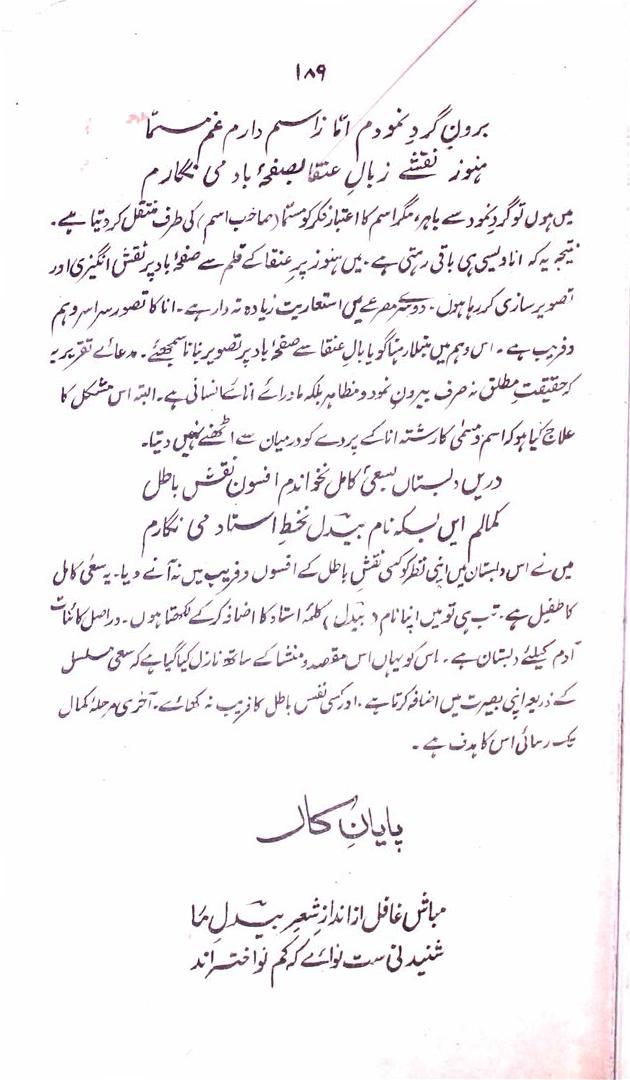 ۱۸۹
برونِ گردِ نمودم امّا ز اسم دارم غمِ مسمّا
ہنوز نقشے ز بالِ عنقا بصفحۂ باد می نگارم
میں ہوں تو گردِ نمود سے باہر، مگر اسم کا اعتبار فکر کو مسمّا (صاحب اسم) کی طرف منتقل کر دیتا ہے۔
نتیجہ یہ کہ انا ویسی ہی باقی رہتی ہے۔ میں ہنوز پرِ عنقا کے قلم سے صفحۂ باد پر نقش انگیزی اور
تصویر سازی کر رہا ہوں۔ دوسرے مصرعے میں استعاریت زیادہ تہ دار ہے۔ انا کا تصور سراسر وہم
و فریب ہے۔ اس وہم میں مبتلا رہنا گویا بالِ عنقا سے صفحۂ باد پر تصویر بنانا سمجھئے۔ مدعائے تقریر یہ
کہ حقیقتِ مطلق نہ صرف بیرونِ نمود و مظاہر بلکہ ماورائے انائے انسانی ہے۔ البتہ اس مشکل کا
علاج کیا ہو کہ اسم و مسمٰی کا رشتہ انا کے پردے کو درمیان سے اٹھنے نہیں دیتا۔
دریں دبستاں بسعیٔ کامل نخواندم افسونِ نقشِ باطل
کمالم ایں بسکہ نام بیدلؔ بخطِ استاد می نگارم
میں نے اس دبستان میں اپنی نظر کو کسی نقشِ باطل کے افسوں و فریب میں نہ آنے دیا۔ یہ سعیٔ کامل
کا طفیل ہے۔ تب ہی تو میں اپنا نام (بیدل) کلمۂ استاد کا اضافہ کر کے لکھتا ہوں۔ دراصل کائنات
آدم کیلئے دبستان ہے۔ اس کو یہاں اس مقصد و منشا کے ساتھ نازل کیا گیا ہے کہ سعی مسلسل
کے ذریعہ اپنی بصیرت میں اضافہ کرتا ہے۔ اور کسی نفس باطل کا فریب نہ کھائے۔ آخری مرحلۂ کمال
تک رسائی اس کا ہدف ہے۔
پایانِ کار
مباش غافل از اندازِ شعرِ بیدلِؔ ما
شنیدنی ست نوائے کہ کم نواختہ اند